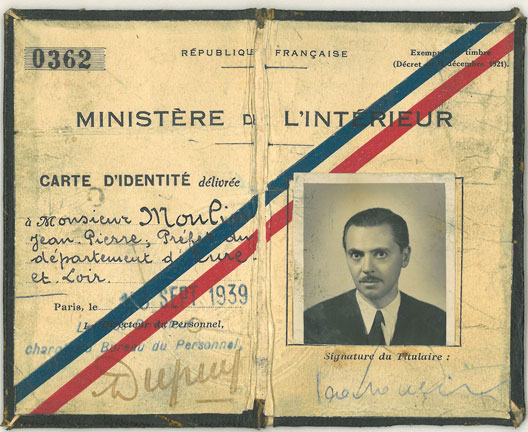 0362
RÉPUBLIQUE FRANÇAISE
Exempt de timbre
(Décret décembre 1921).
MINISTÈRE DE L'INTÉRIEUR
CARTE D'IDENTITÉ délivrée
à Monsieur Moulin
Jean Pierre, Préfet du
département d'Eure-
et-Loir.
Paris, le SEPT. 1939
Le Directeur du Personnel,
chargé du Bureau du Personnel,
Signature du Titulaire :